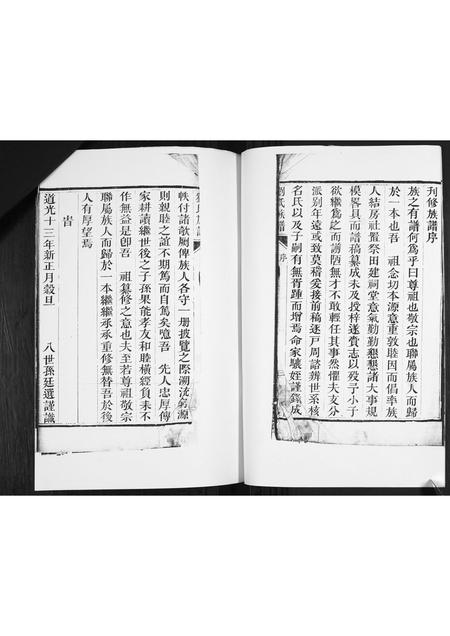 刊修族譜序
族之有譜何為乎曰尊祖也敬宗也聯屬族人而歸
於一本也吾　祖念切本源意重敦睦因而倡率族
人結房社置祭田建祠堂意氣勤勤懇懇諸大事規
模畧具而譜稿纂成未及授梓遂賫志以歿予小子
欲繼為之而謭陋無才不敢輕任其事然懼夫支分
派別年遠或致莫稽爰接前稿逐戶周諮辨世系核
名氏以及子嗣有無胥踵而增焉命家驥姪謹錄成
劉氏族譜　序
帙付諸欹劂俾族人各守一册披覽之際溯流窮源
則親睦之誼不期篤而自篤矣噫吾　先人忠厚傳
家耕讀繼世後之子孫果能孝友和睦橫經負耒不
作無益是即吾　祖纂修之意也夫至若尊祖敬宗
聯屬族人而歸於一本繼繼承承重修無替吾於後
人有厚望焉
旹
道光十三年新正月穀旦　八世孫廷選謹識